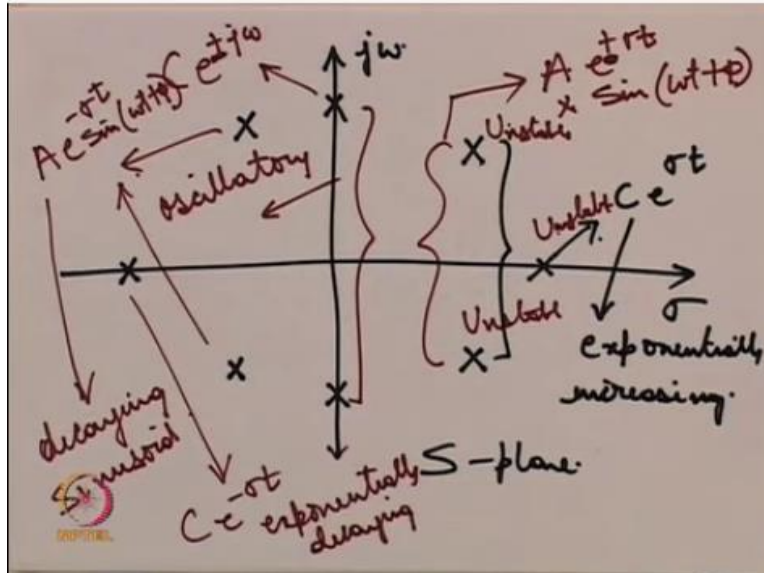 jω.
A e^-σt sin(ωt+φ)
C e^±jω
A e^+σt
× sin(ωt+φ)
Unstable
oscillatory
Unstable
C e^σt
Unstable
σ
exponentially
increasing.
decaying
sinusoid
C e^-σt exponentially
decaying
S-plane.
NPTEL